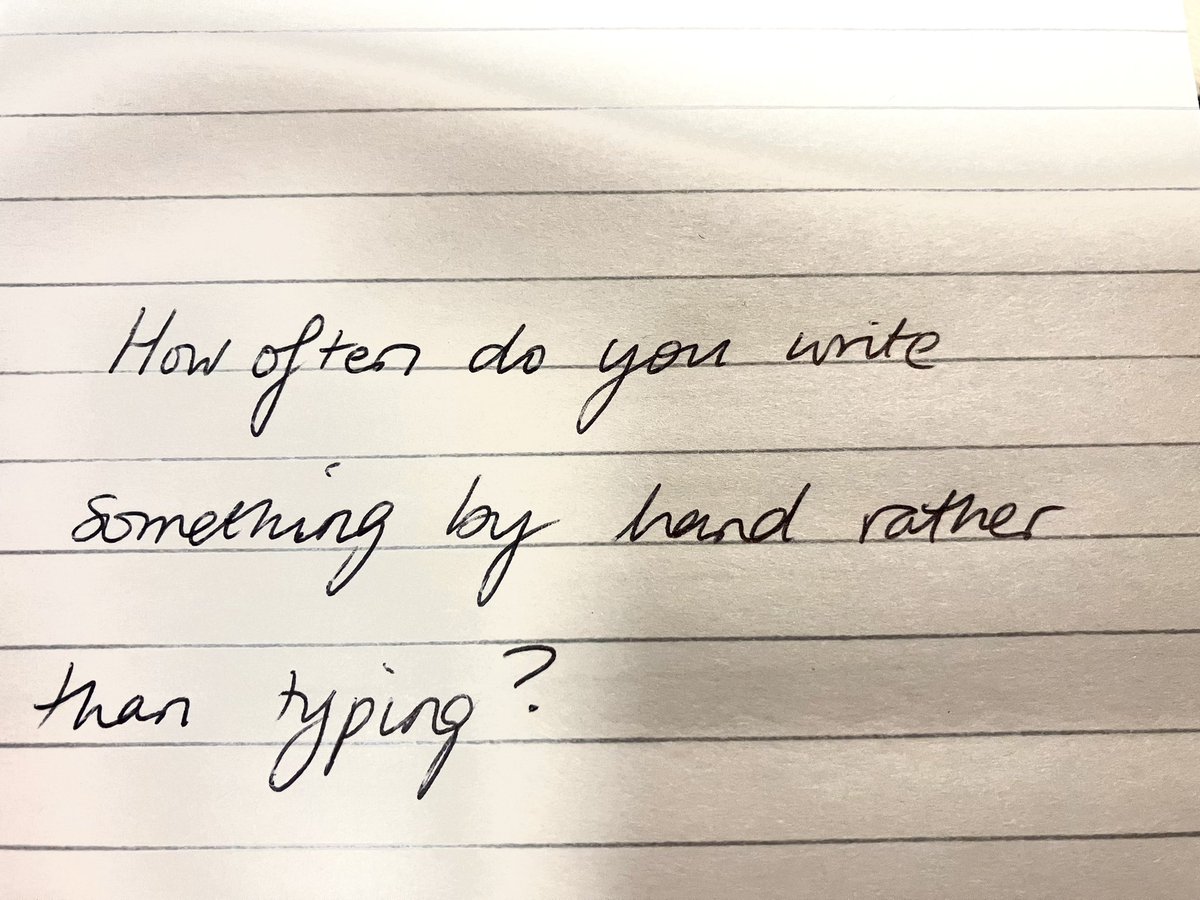 How often do you write
something by hand rather
than typing?